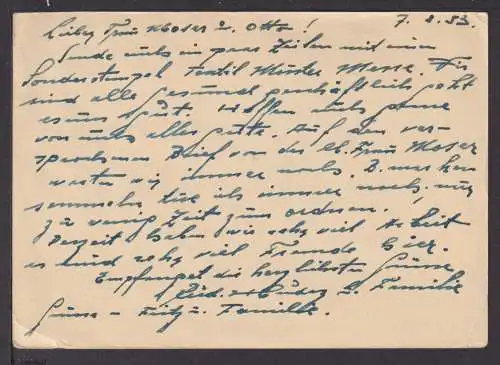 Liebe Frau Moser u. Otto! 7. 8. 53.
Sende euch ein paar Zeilen mit einen
Sonderstempel Textil Muster Messe. Wir
sind alle Gesund geschäftlich geht
es uns gut. Hoffen auch gerne
von euch alles gute. Auf den ver-
sprochenen Brief von der lb. Frau Moser
warten wir immer noch. B. marken
sammeln tue ich immer noch. nur
zu wenig Zeit zum ordnen.
Derzeit haben wir sehr viel Arbeit
es sind sehr viel Fremde hier.
Empfanget die herzlichsten Grüsse
u. Familie
Grüsse - Fritz u. Familie.